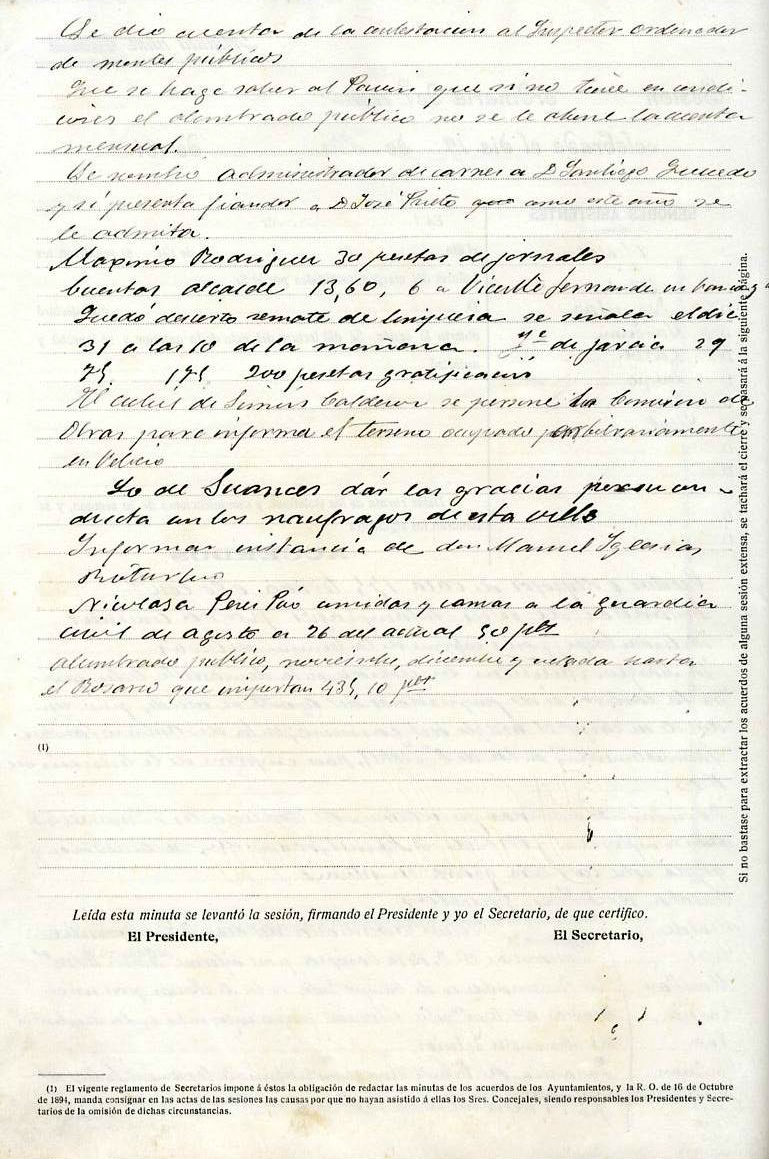 Se dio cuenta de la contestacion al Inspector ordenador
de montes públicos
Que se haga saber al que si no tiene en condi-
ciones el alumbrado público no se le abone la cuenta
mensual.
Se nombró administrador de carnes a D Santiago
y si presenta fiandor a D José Prieto como este año se
le admita.
Maximio Rodriguez 30 pesetas de jornales
Cuentas alcalde 13,60, 6 a Vicente Fernande
Quedó desierto remate de limpieza se señala el dia
31 a las 10 de la mañana. de 29
75 175 200 pesetas gratificacion
Al de Calderon se persone la Comision de
Obras para informa el terreno ocupado arbitrariamente
en
Lo de Suances dár las gracias por su con-
ducta con los naufragos de esta villa
Informar instancia de don Manuel Iglesias

Nicolasa Perez comidas y camas a la guardia
civil de agosto a 26 del actual 50 pts
alumbrado publico, noviembre, diciembre y hasta
el Rosario que importan 435,10 pts
(1)
Leída esta minuta se levantó la sesión, firmando el Presidente y yo el Secretario, de que certifico.
El Presidente, El Secretario,
(1) El vigente reglamento de Secretarios impone á éstos la obligación de redactar las minutas de los acuerdos de los Ayuntamientos, y la R. O. de 16 de Octubre
de 1894, manda consignar en las actas de las sesiones las causas por que no hayan asistido á ellas los Sres. Concejales, siendo responsables los Presidentes y Secre-
tarios de la omisión de dichas circunstancias.
Si no bastase para extractar los acuerdos de alguna sesión extensa, se tachará el cierre y se pasará á la siguiente página.